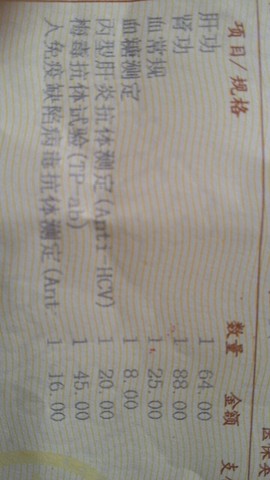 项目/规格 数量 金额
肝功 1 64.00
肾功 1 88.00
血常规 1 25.00
血糖测定 1 8.00
丙型肝炎抗体测定(Anti-HCV) 1 20.00
梅毒抗体试验(TP-ab) 1 45.00
人免疫缺陷病毒抗体测定(Ant 1 16.00